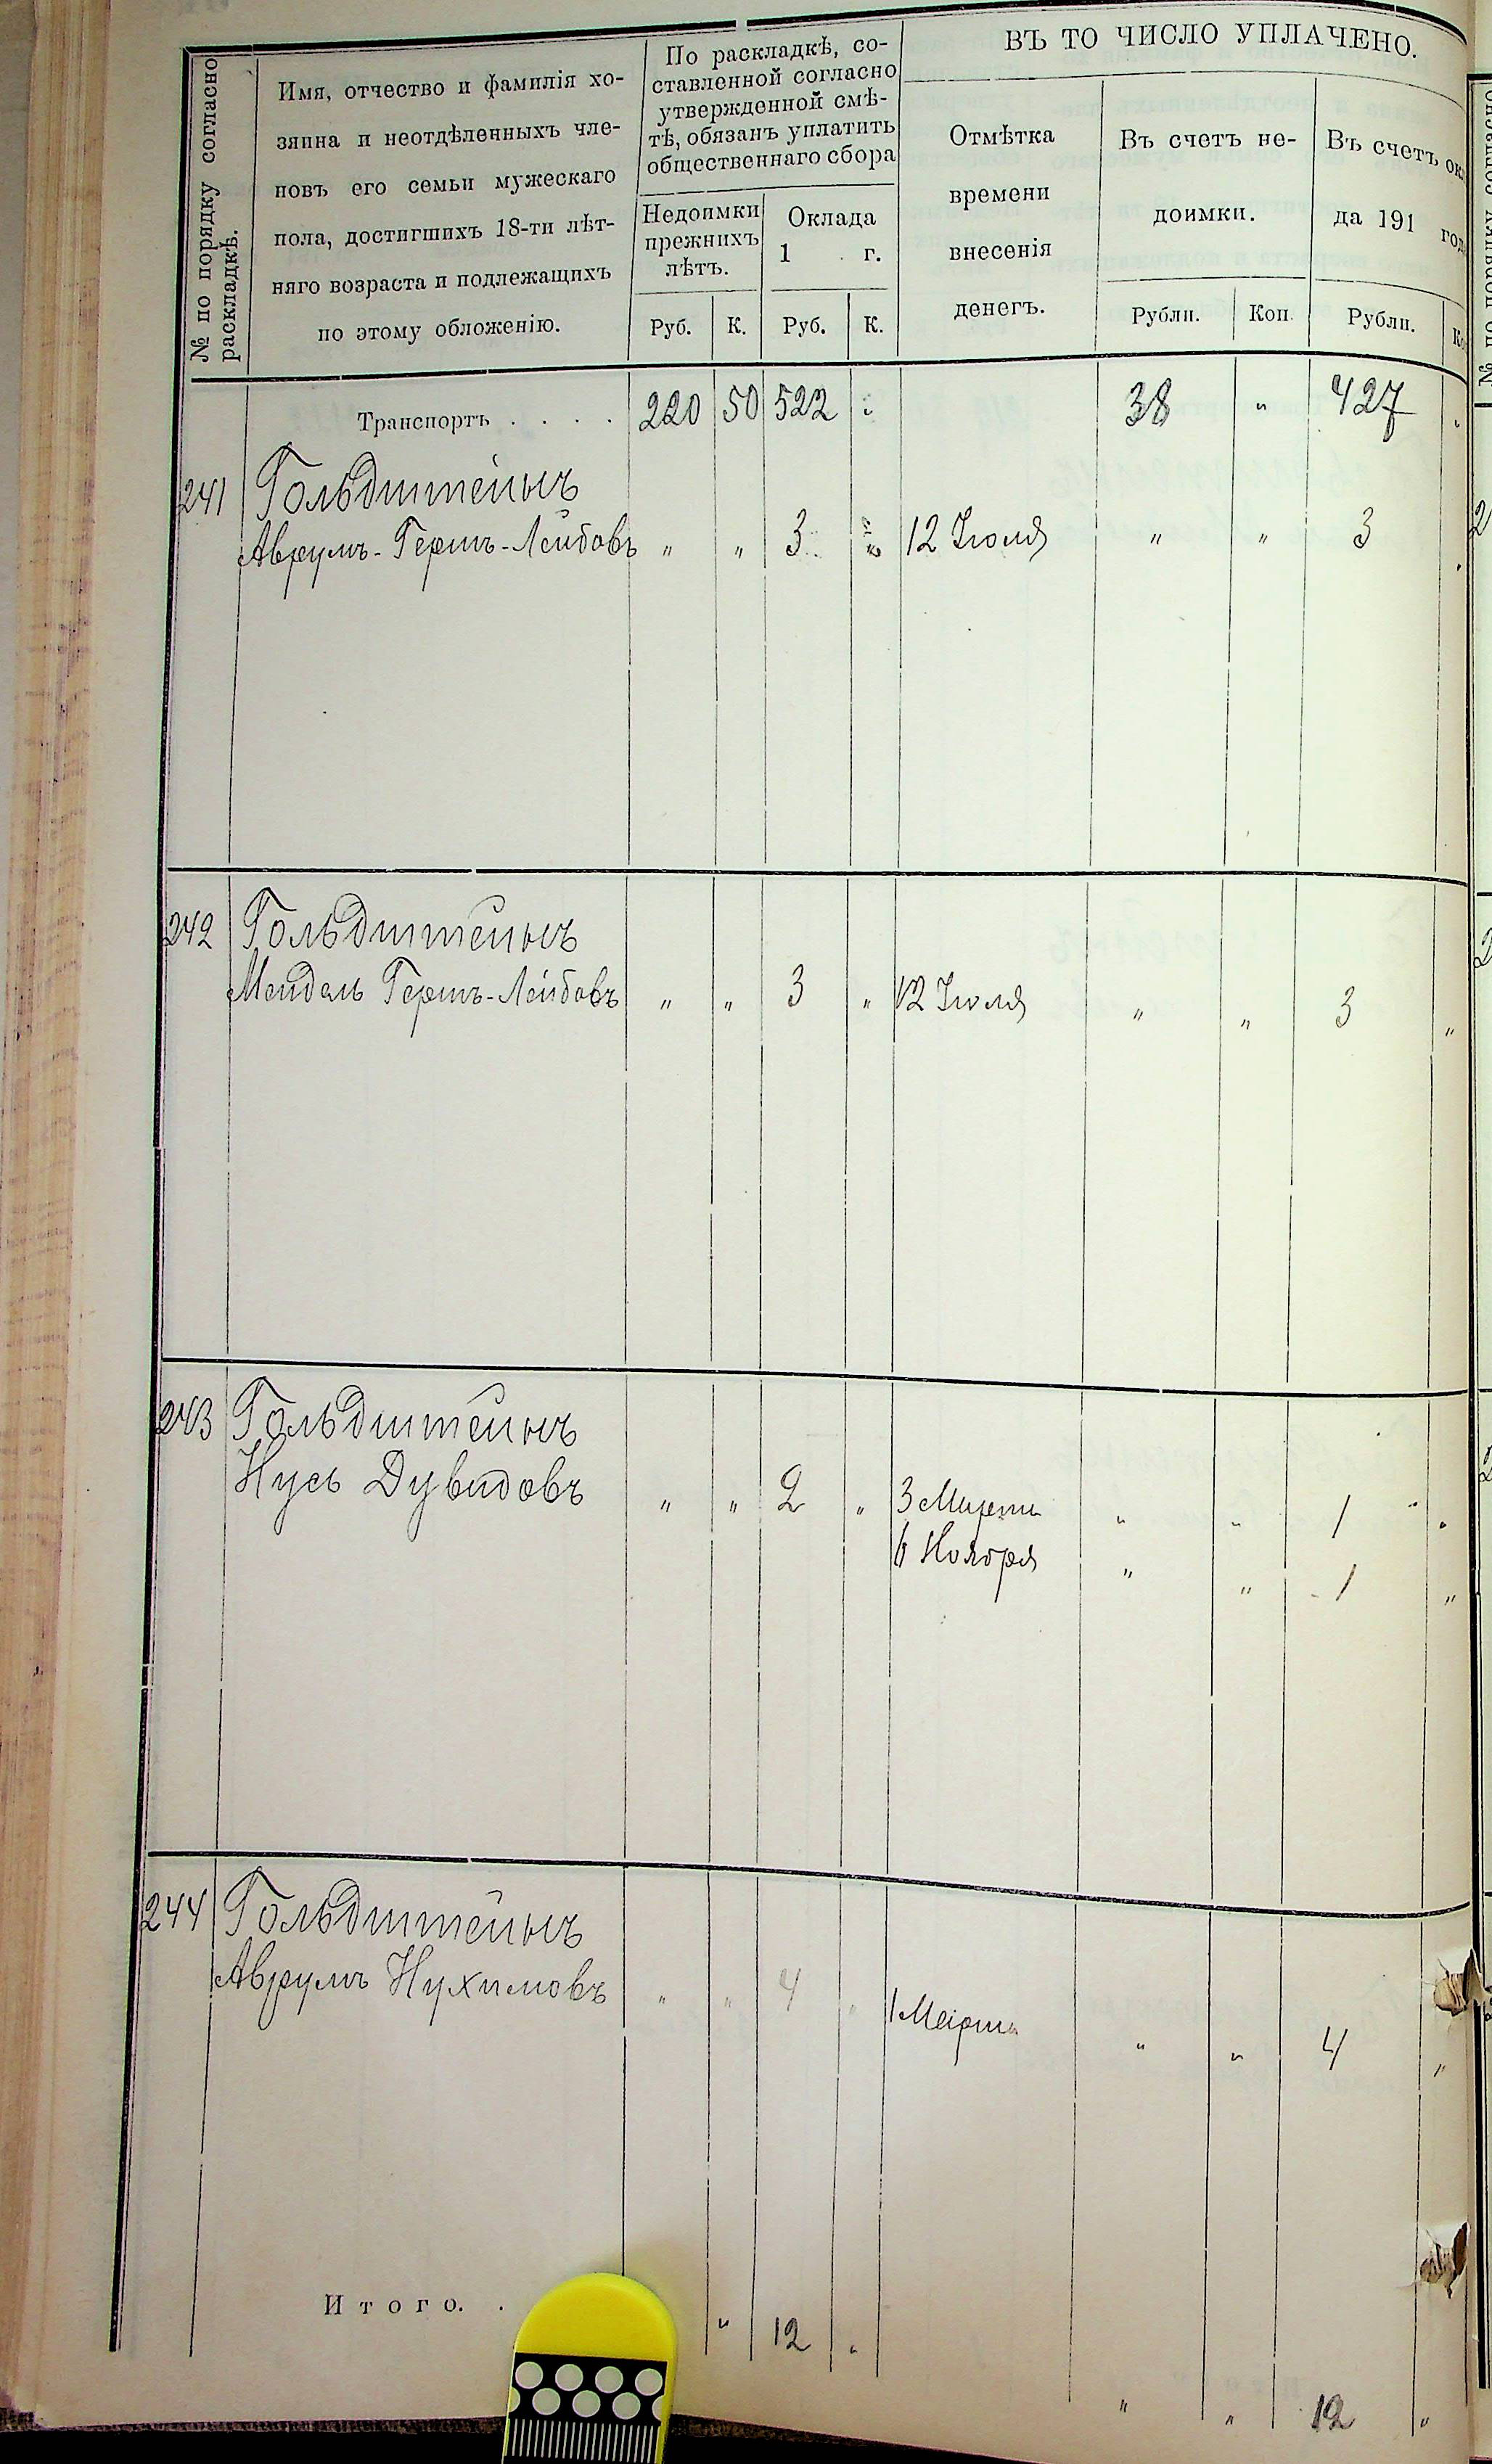 № по порядку согласно
раскладкѣ.
Имя, отчество и фамилія хо-
зяина и неотдѣленныхъ чле-
новъ его семьи мужескаго
пола, достигшихъ 18-ти лѣт-
няго возраста и подлежащихъ
по этому обложенію.
По раскладкѣ, со-
ставленной согласно
утвержденной смѣ-
тѣ, обязанъ уплатить
общественнаго сбора
Недоимки
прежнихъ
лѣтъ.
Оклада
1 г.
Руб. К. Руб. К.
ВЪ ТО ЧИСЛО УПЛАЧЕНО.
Отмѣтка
времени
внесенія
денегъ.
Въ счетъ не-
доимки.
Рубли. Коп.
Въ счетъ ок
да 191 год
Рубли. К
Транспортъ . . . . 220 50 522 " 38 " 427 "
241 Гольдштейнъ
Аврумъ-Гершъ-Лейбовъ " " 3 " 12 Іюля " " 3 "
242 Гольдштейнъ
Мендель Гершъ-Лейбовъ " " 3 " 12 Іюля " " 3 "
243 Гольдштейнъ
Нусь Дувидовъ " " 2 " 3 Марта " " 1 "
6 Ноября " " 1 "
244 Гольдштейнъ
Аврумъ Нухимовъ " " 4 " 1 Марта " " 4 "
Итого. . " 12 " " " 12 "